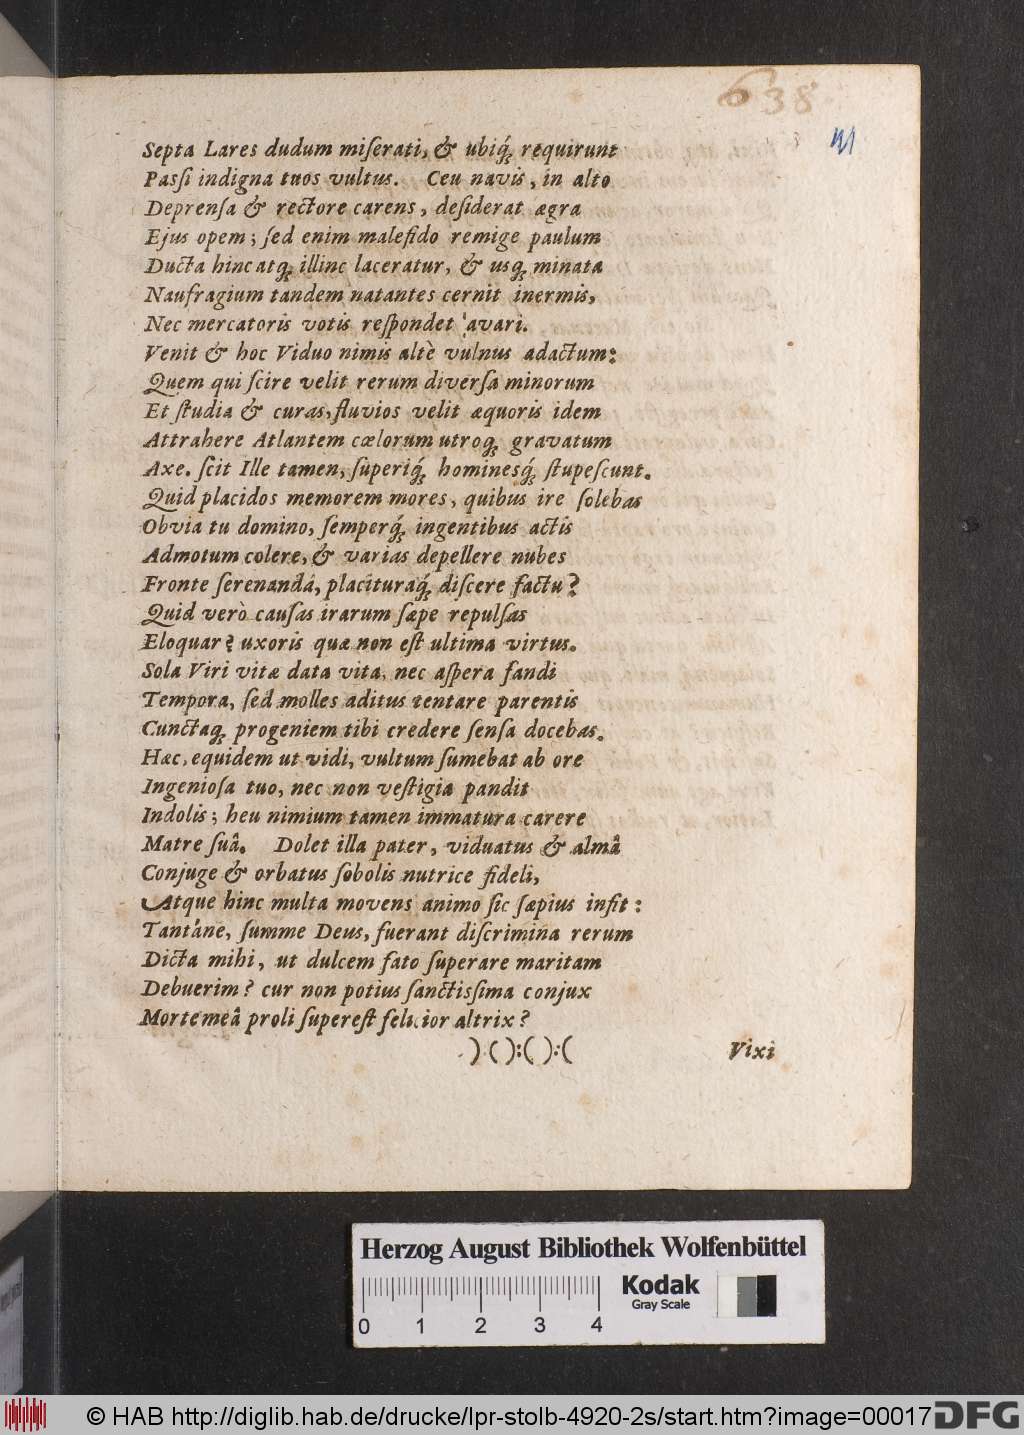 638
Septa Lares dudum miſerati, & ubiq́; requirunt
Paſſi indigna tuos vultus. Ceu navis, in alto
Deprenſa & rectore carens, deſiderat ægra
Ejus opem; ſed enim malefido remige paulum
Ducta hinc atq; illinc laceratur, & usq; minata
Naufragium tandem natantes cernit inermis,
Nec mercatoris votis reſpondet avari.
Venit & hoc Viduo nimis altè vulnus adactum:
Quem qui ſcire velit rerum diverſa minorum
Et ſtudia & curas, fluvios velit æquoris idem
Attrahere Atlantem cœlorum utroq; gravatum
Axe. ſcit Ille tamen, ſuperiq́; hominesq́; ſtupeſcunt.
Quid placidos memorem mores, quibus ire ſolebas
Obvia tu domino, ſemperq́; ingentibus actis
Admotum colere, & varias depellere nubes
Fronte ſerenandâ, placituraq́; diſcere factu?
Quid verò cauſas irarum ſæpe repulſas
Eloquar? uxoris quæ non eſt ultima virtus.
Sola Viri vitæ data vita, nec aſpera fandi
Tempora, ſed molles aditus tentare parentis
Cunctaq; progeniem tibi credere ſenſa docebas.
Hæc, equidem ut vidi, vultum ſumebat ab ore
Ingenioſa tuo, nec non veſtigia pandit
Indolis; heu nimium tamen immatura carere
Matre ſuâ. Dolet illa pater, viduatus & almâ
Conjuge & orbatus ſobolis nutrice fideli,
Atque hinc multa movens animo ſic ſæpius infit:
Tantáne, ſumme Deus, fuerant diſcrimina rerum
Dicta mihi, ut dulcem fato ſuperare maritam
Debuerim? cur non potius ſanctiſſima conjux
Morte meâ proli ſupereſt felicior altrix?
)( ):( ):(
Vixi
Herzog August Bibliothek Wolfenbüttel
Kodak
Gray Scale
0 1 2 3 4
© HAB http://diglib.hab.de/drucke/lpr-stolb-4920-2s/start.htm?image=00017
DFG